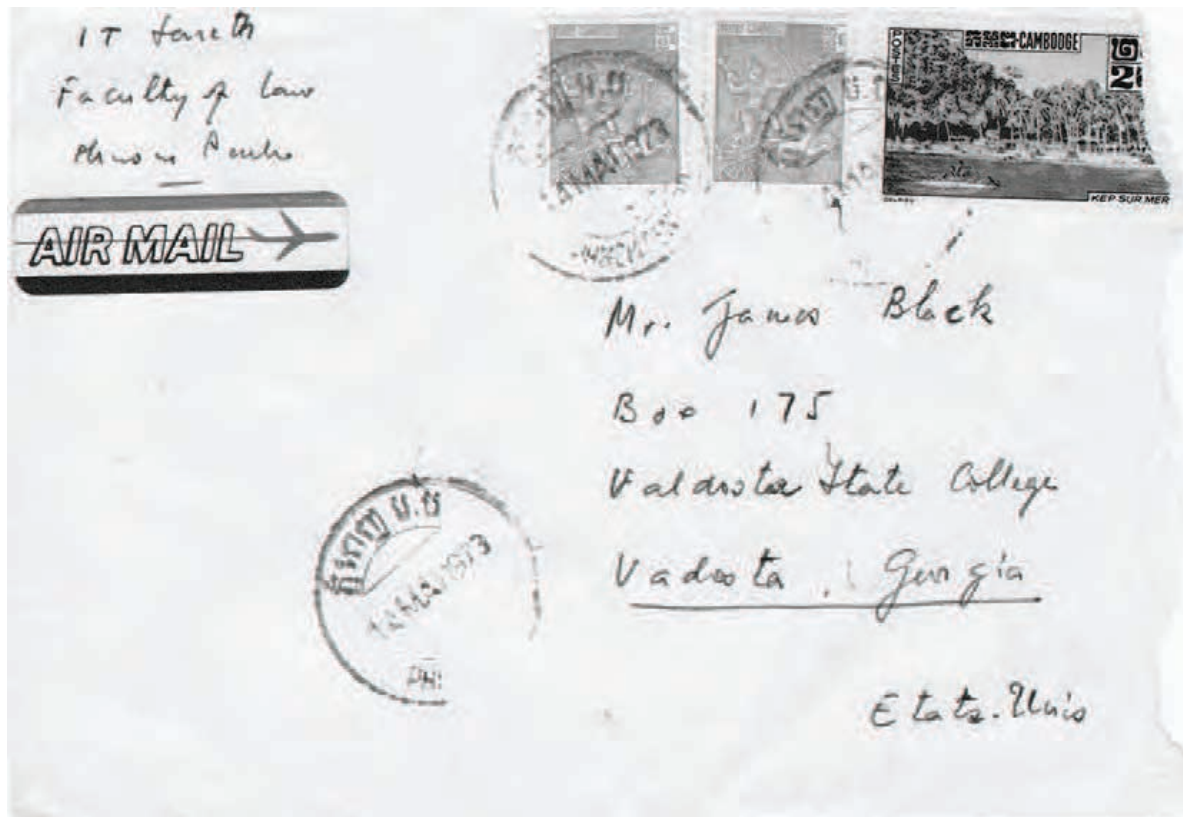 IT Sareth
Faculty of Law
Phnom Penh
AIR MAIL
POSTES
CAMBODGE
2
KEP SUR MER
Mr. James Black
Box 175
Valdosta State College
Vadosta, Georgia
Etats-Unis
MAI 1973
1973
PH